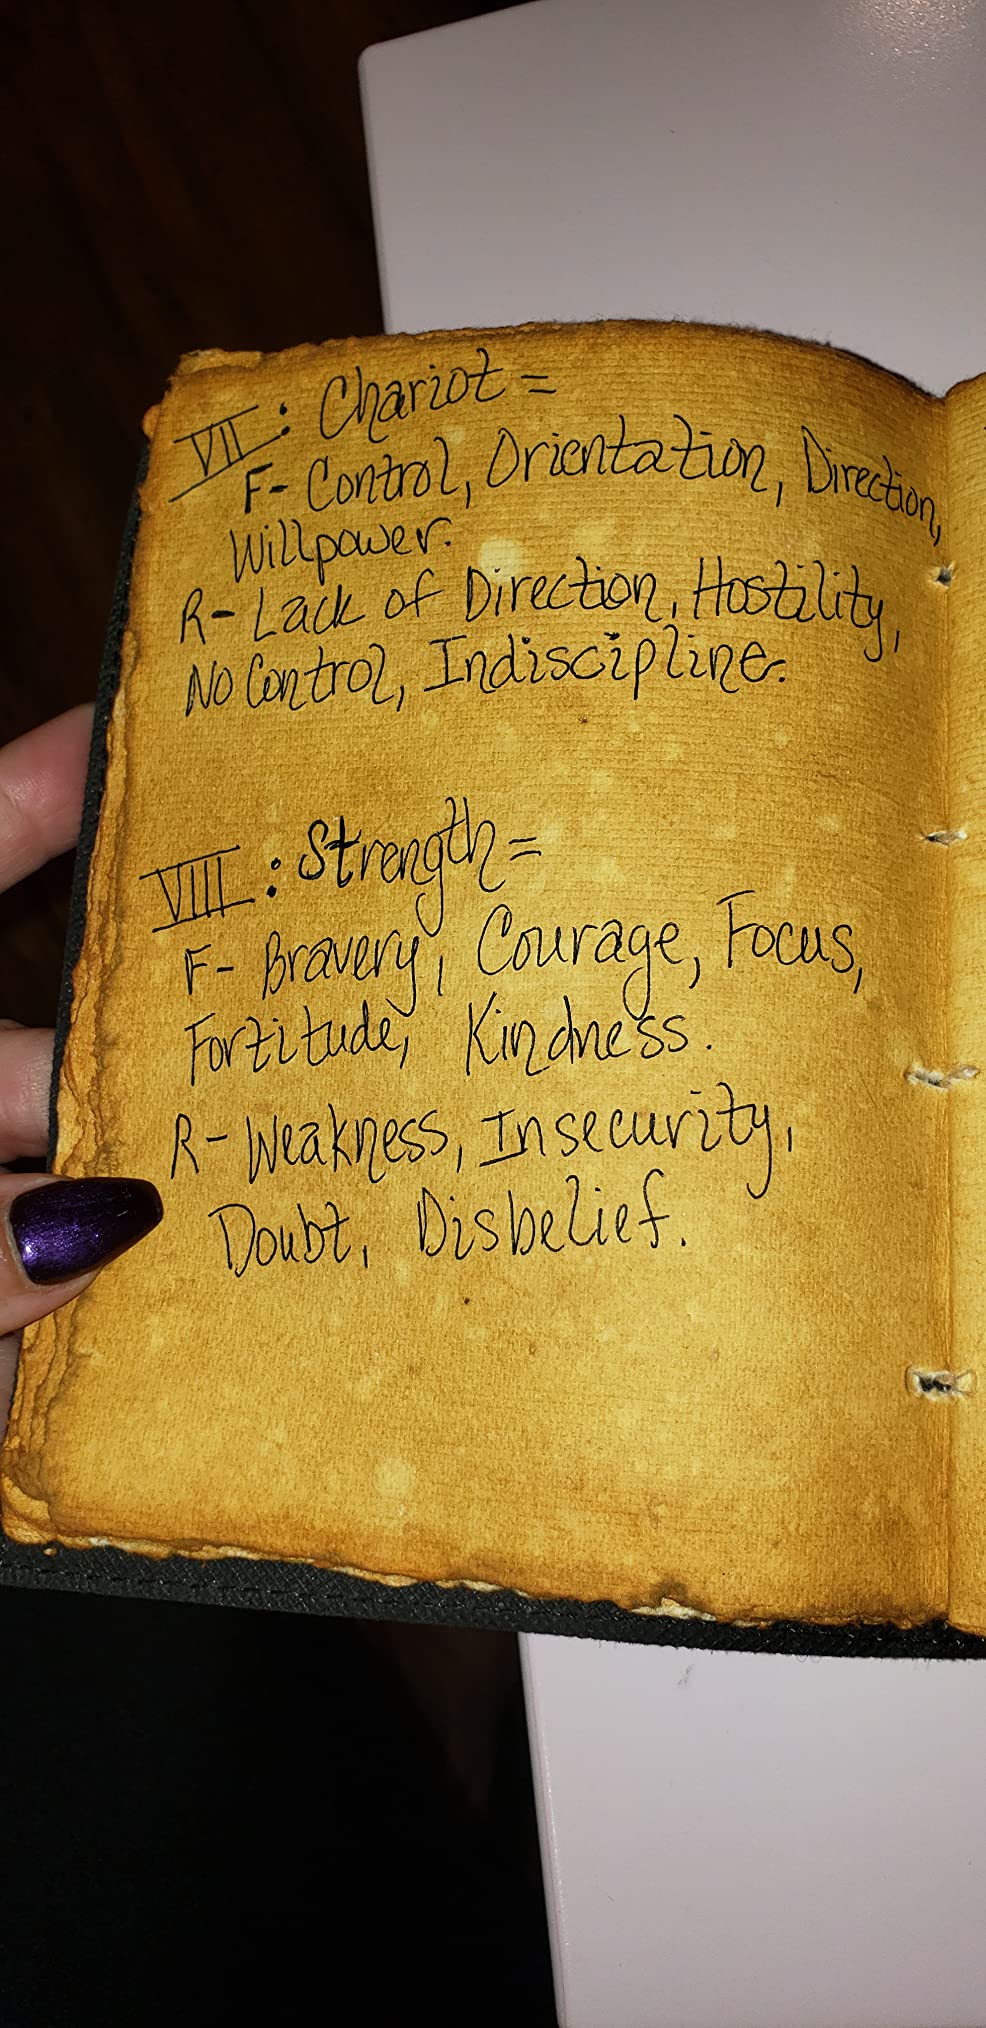 VII: Chariot =
F- Control, Orientation, Direction,
Willpower.
R- Lack of Direction, Hostility,
No Control, Indiscipline.
VIII: Strength =
F- Bravery, Courage, Focus,
Fortitude, Kindness.
R- Weakness, Insecurity,
Doubt, Disbelief.